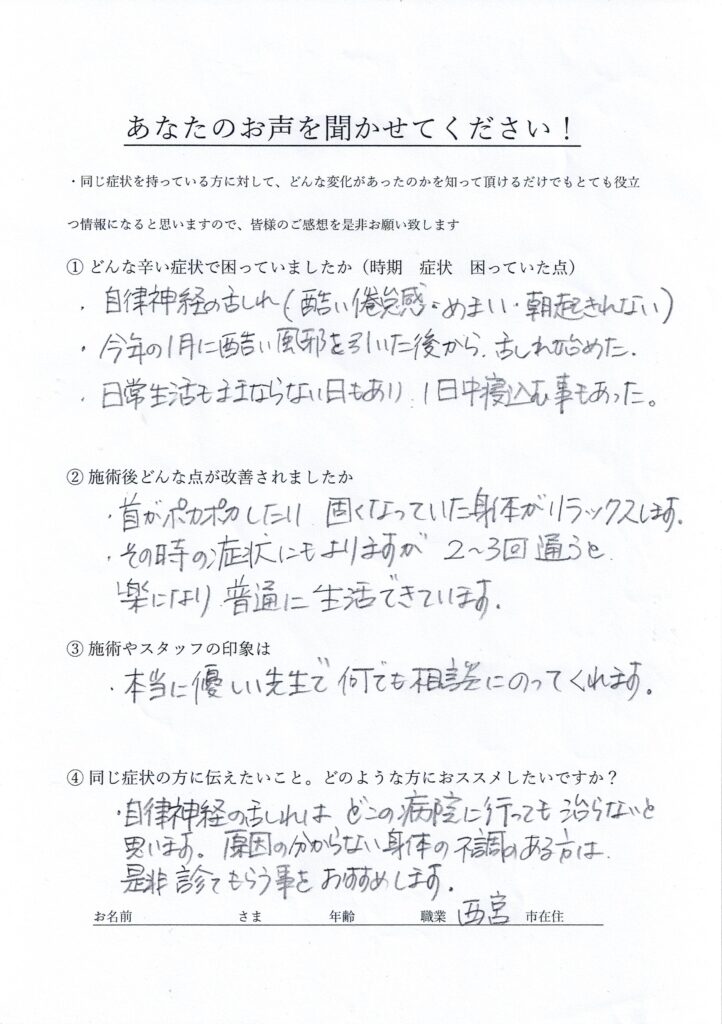 あなたのお声を聞かせてください！
・同じ症状を持っている方に対して、どんな変化があったのかを知って頂けるだけでもとても役立
つ情報になると思いますので、皆様のご感想を是非お願い致します
① どんな辛い症状で困っていましたか（時期　症状　困っていた点）
・自律神経の乱れ（酷い倦怠感・めまい・朝起きれない）
・今年の1月に酷い風邪を引いた後から、乱れ始めた。
・日常生活もままならない日もあり 1日中寝込む事もあった。
② 施術後どんな点が改善されましたか
・首がポカポカしたり 固くなっていた身体がリラックスします。
・その時の症状にもよりますが 2〜3回通うと
楽になり 普通に生活できています。
③ 施術やスタッフの印象は
・本当に優しい先生で 何でも相談にのってくれます。
④ 同じ症状の方に伝えたいこと。どのような方におススメしたいですか？
・自律神経の乱れは どこの病院に行っても治らないと
思います。原因の分からない身体の不調のある方は
是非診てもらう事をおすすめします。
お名前　さま　年齢　職業　西宮 市在住